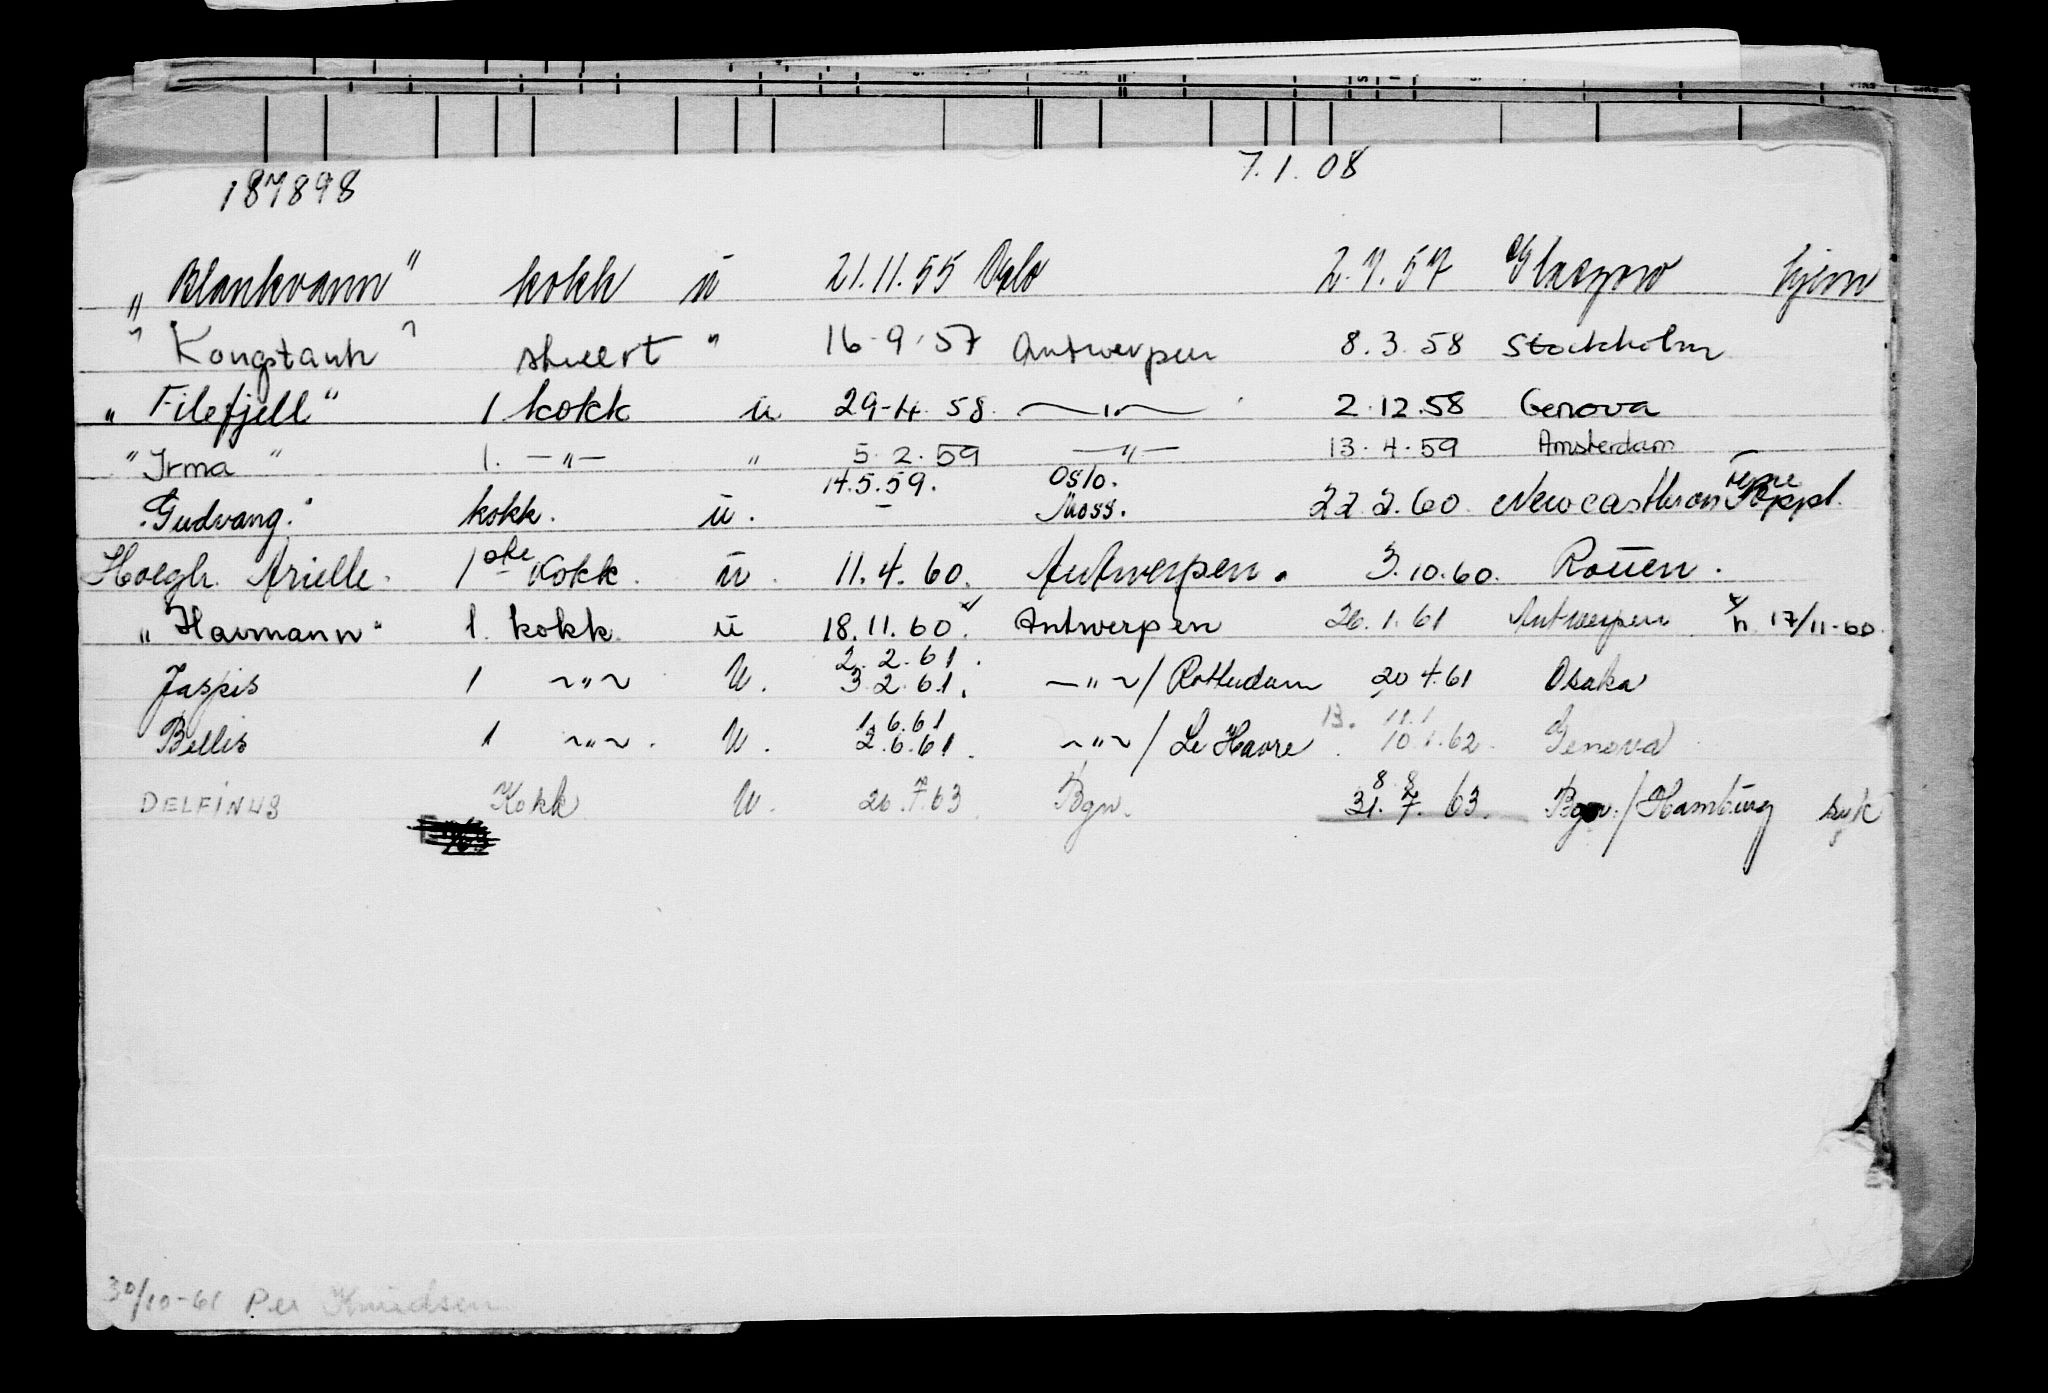 187898 7.1.08
"Blankvann" kokk u 21.11.55 Oslo 2.7.57 Glasgow hjem
"Kongstank" stuert " 16.9.57 Antwerpen 8.3.58 Stockholm
"Filefjell" 1 kokk u 29-4.58. —"— 2.12.58 Genova
"Irma" 1. —"— " 5.2.59 —"— 13.4.59 Amsterdam
"Gudvang." kokk. u. 14.5.59. – Oslo. Moss. 22.2.60. Newcastle
Hoegh. Arielle. 1ste Kokk. u. 11.4.60. Antwerpen. 3.10.60. Rouen.
"Havmann" 1. kokk. u 18.11.60. x/ Antwerpen 26.1.61 Antwerpen x/ h. 17/11-60.
Jaspis 1 ~"~ u. 2.2.61. 3.2.61. —"~/Rotterdam 20 4.61 Osaka
Bellis 1 ~"~. u. 1.6.61 2.6.61. ~"~/Le Havre 13. 11.1 10.1.62. Genova
DELFINUS Kokk u. 26.7.63 Bgn. 8.8 31.7.63. Bgn./Hamburg syk
30/10-61 Per Knudsen